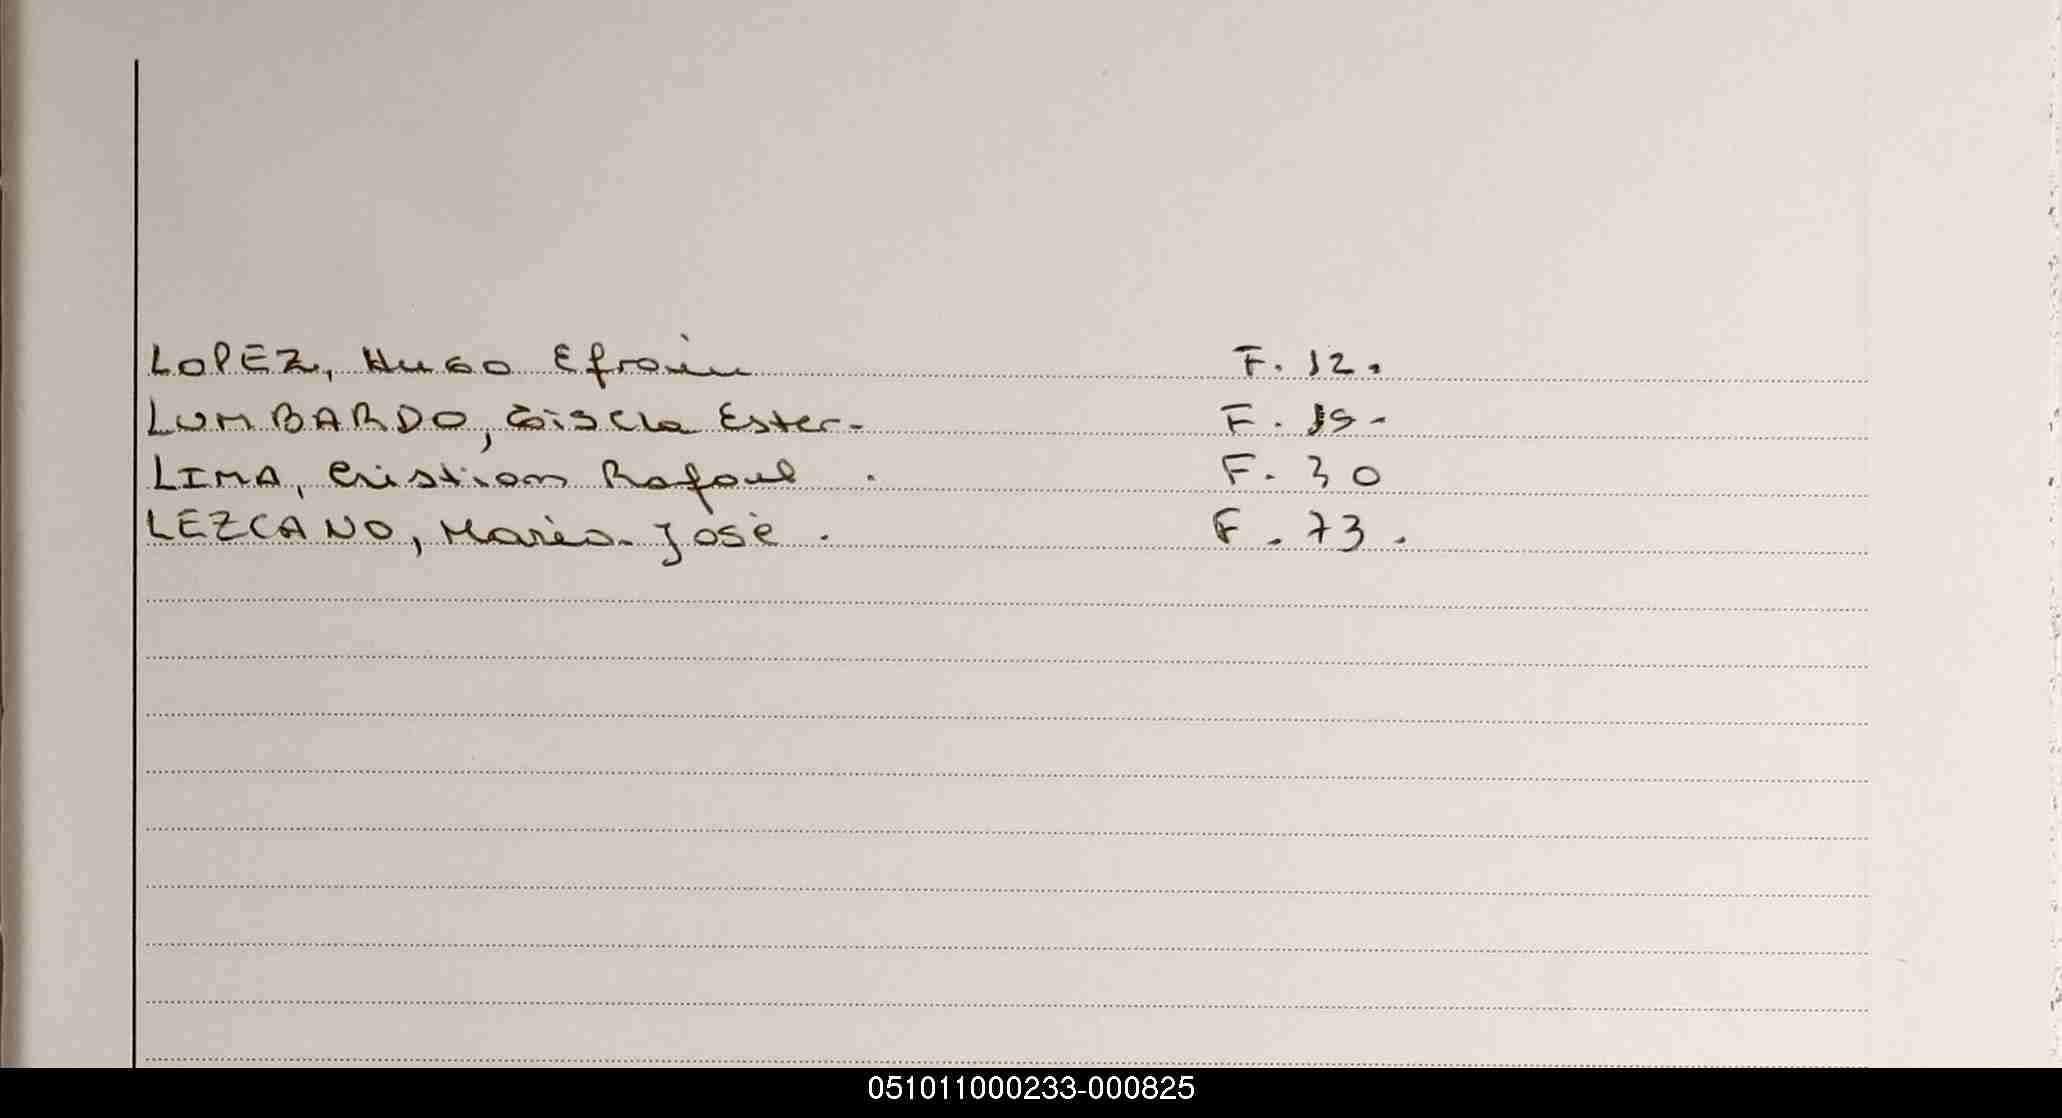 LOPEZ, HUGO Efrain F. 12.
LUMBARDO, Gisela Ester.- F. 19-
LIMA, Cristian Rafael . F. 30
LEZCANO, María José . F. 73.
051011000233-000825